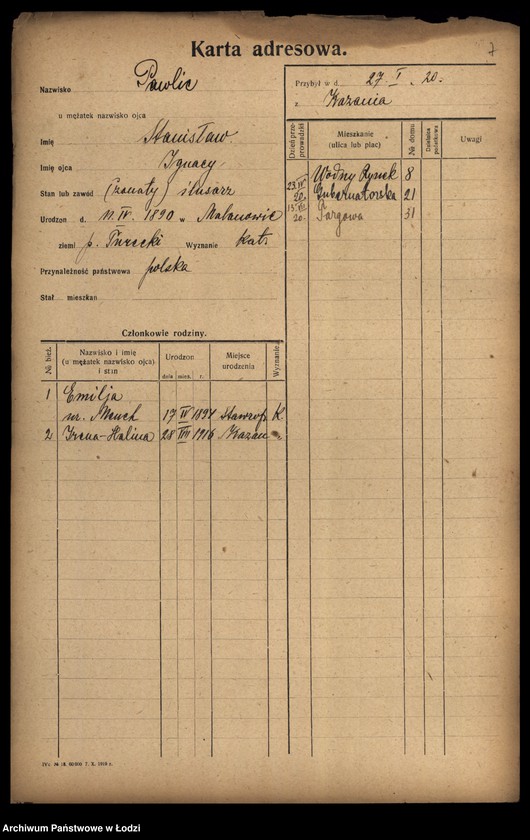 Karta adresowa.
7
Nazwisko Pawlic
u mężatek nazwisko ojca
Imię Stanisław
Imię ojca Ignacy
Stan lub zawód (żonaty) ślusarz
Urodzon d. 11. IV. 1890 w Malanowie
ziemi p. Turecki Wyznanie kat.
Przynależność państwowa polska
Stał. mieszkan
Przybył w d 27. I. 20.
z Kazania
Dzień przeprowadzki
Mieszkanie (ulica lub plac)
№ domu
Dzielnica podatkowa
Uwagi
Wodny Rynek 8
23.IV. 20. Gubernatorska 21
20. Targowa 31
Członkowie rodziny.
№ bież.
Nazwisko i imię (u mężatek nazwisko ojca) i stan
Urodzon
dnia mies. r.
Miejsce urodzenia
Wyznanie
1 Emilja
ur. 17 IV 1894 K
2 Irena-Halina 28 VIII 1916 Kazan
Archiwum Państwowe w Łodzi